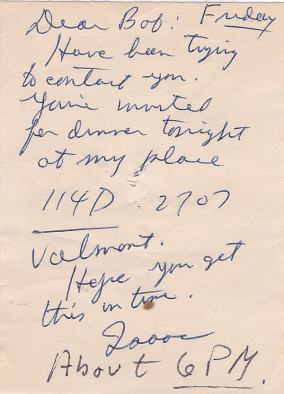 Dear Bob: Friday
Have been trying
to contact you.
You're invited
for dinner tonight
at my place
114D . 2707
Valmont.
Hope you get
this in time.
About 6 PM.